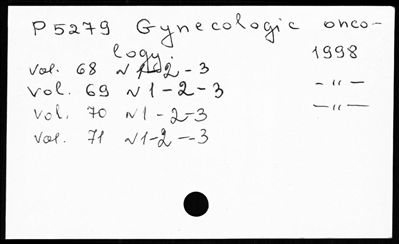 P5279 Gynecologic onco-
logy. 1998
vol. 68 N 1-2-3
vol. 69 N 1-2-3 -"-
vol. 70 N 1-2-3 -"-
vol. 71 N 1-2-3